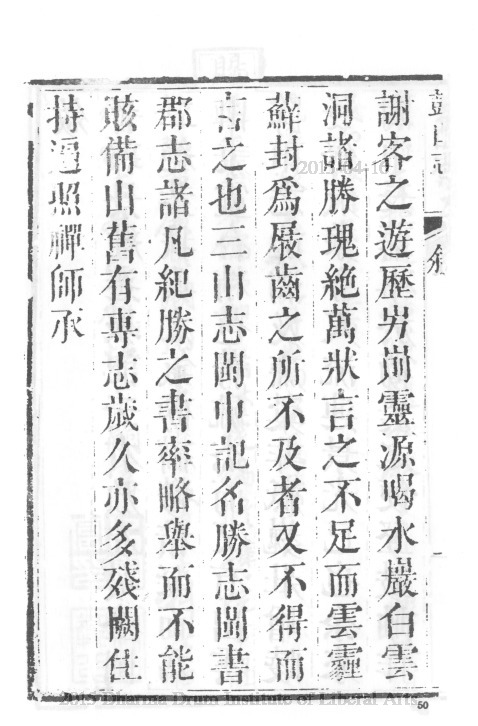 謝客之遊歷岃崱靈源喝水巖白雲
洞諸勝瑰絕萬狀言之不足而雲霾
蘚封為屐齒之所不及者又不得而
言之也三山志閩中記名勝志閩書
郡志諸凡紀勝之書率略舉而不能
賅備山舊有專志歲久亦多殘闕住
持遍照禪師承
2015-04-16
2015 Dharma Drum Institute of Liberal Arts
50